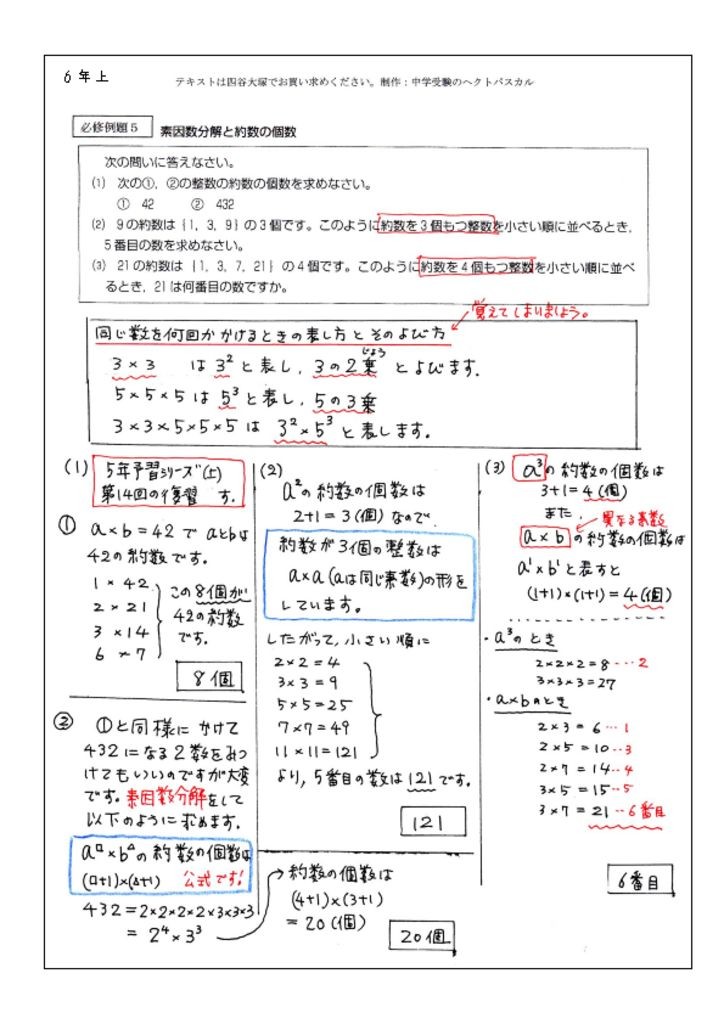 6年上
テキストは四谷大塚でお買い求めください。制作：中学受験のヘクトパスカル
必修例題5 素因数分解と約数の個数
次の問いに答えなさい。
(1) 次の①，②の整数の約数の個数を求めなさい。
① 42 ② 432
(2) 9の約数は｛1，3，9｝の3個です。このように約数を3個もつ整数を小さい順に並べるとき，
5番目の数を求めなさい。
(3) 21の約数は｛1，3，7，21｝の4個です。このように約数を4個もつ整数を小さい順に並べ
るとき，21は何番目の数ですか。
覚えてしまいましょう。
同じ数を何回かかけるときの表し方とそのよび方
3×3 は3²と表し，3の2乗とよびます。
じょう
5×5×5は5³と表し，5の3乗
3×3×5×5×5は 3²×5³と表します。
(1) 5年予習シリーズ(上)
第14回の復習 す。
① a×b=42で aとbは
42の約数です。
1×42
2×21
3×14
6×7
この8個が
42の約数
です。
8個
② ①と同様に かけて
432になる2数をみつ
けてもいいのですが大変
です。素因数分解をして
以下のように求めます。
a□×b△の約数の個数は
(□+1)×(△+1) 公式です!
432=2×2×2×2×3×3×3
=2⁴×3³
→約数の個数は
(4+1)×(3+1)
=20(個)
20個
(2)
a²の約数の個数は
2+1=3(個)なので，
約数が3個の整数は
a×a(aは同じ素数)の形を
しています。
したがって，小さい順に
2×2=4
3×3=9
5×5=25
7×7=49
11×11=121
より，5番目の数は121です。
121
(3) a³の約数の個数は
3+1=4(個)
また，
異なる素数
a×bの約数の個数は
a¹×b¹と表すと
(1+1)×(1+1)=4(個)
・a³のとき
2×2×2=8…2
3×3×3=27
・a×bのとき
2×3=6…1
2×5=10…3
2×7=14…4
3×5=15…5
3×7=21…6番目
6番目